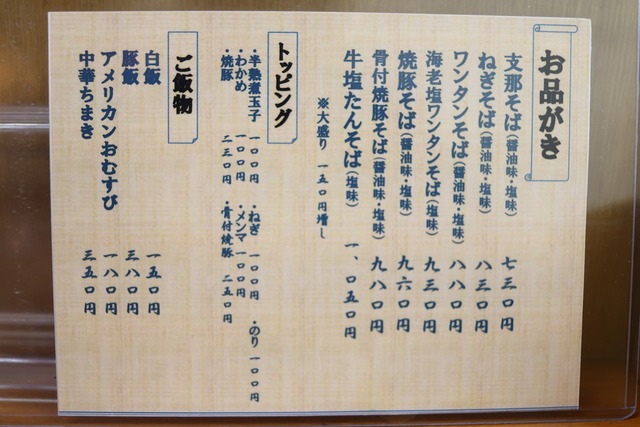 お品がき
支那そば(醤油味・塩味) 七三〇円
ねぎそば(醤油味・塩味) 八三〇円
ワンタンそば(醤油味・塩味) 八八〇円
海老塩ワンタンそば(塩味) 九三〇円
焼豚そば(醤油味・塩味) 九六〇円
骨付焼豚そば(醤油味・塩味) 九八〇円
牛塩たんそば(塩味) 一、〇五〇円
※大盛り 一五〇円増し
トッピング
・半熟煮玉子 一〇〇円 ・ねぎ 一〇〇円 ・のり 一〇〇円
・わかめ 一〇〇円 ・メンマ 一〇〇円
・焼豚 二三〇円 ・骨付焼豚 二五〇円
ご飯物
白飯 一五〇円
豚飯 三八〇円
アメリカンおむすび 一八〇円
中華ちまき 三五〇円